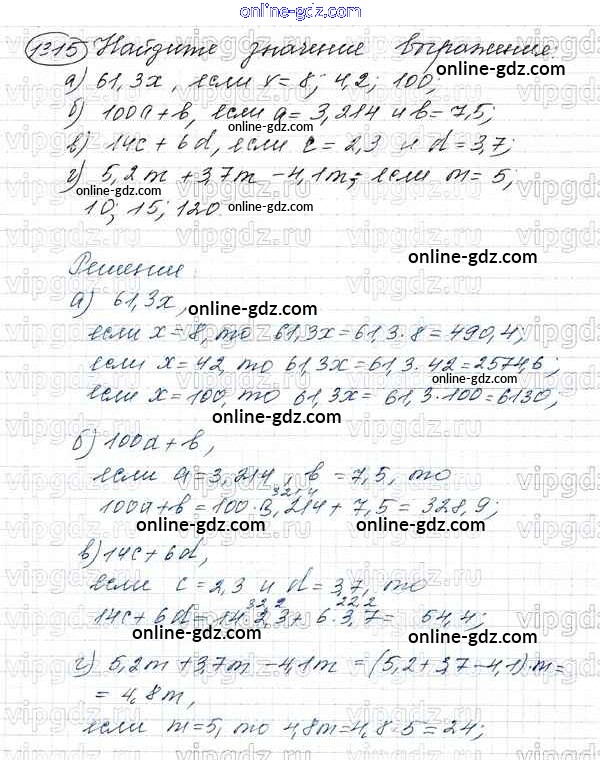 online-gdz.com
1315 Найдите значение выражение:
а) 61,3x, если x = 8; 42; 100;
б) 100a+b, если a = 3,214 и b = 7,5;
в) 14c + 6d, если c = 2,3 и d = 3,7;
г) 5,2m + 3,7m - 4,1m, если m = 5;
10; 15; 120
Решение:
а) 61,3x,
если x = 8, то 61,3x = 61,3 · 8 = 490,4;
если x = 42, то 61,3x = 61,3 · 42 = 2574,6;
если x = 100, то 61,3x = 61,3 · 100 = 6130;
б) 100a + b,
если a = 3,214, b = 7,5, то
321,4
100a+b = 100 · 3,214 + 7,5 = 328,9;
в) 14c + 6d,
если c = 2,3 и d = 3,7, то
32,2 22,2
14c + 6d = 14 · 2,3 + 6 · 3,7 = 54,4;
г) 5,2m + 3,7m - 4,1m = (5,2+3,7-4,1)·m =
= 4,8m,
если m = 5, то 4,8m = 4,8 · 5 = 24;